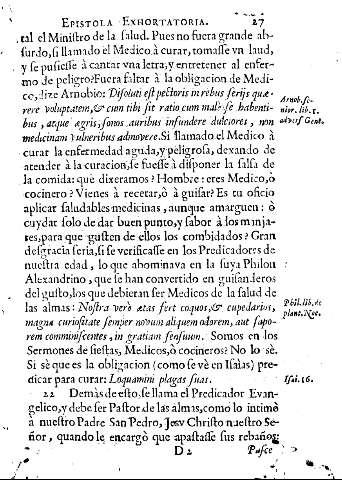 EPISTOLA EXHORTATORIA. 27
tal el Ministro de la salud. Pues no fuera grande ab-
surdo, si llamado el Medico à curar, tomasse vn laud,
y se pusiesse à cantar vna letra, y entretener al enfer-
mo de peligro? Fuera faltar à la obligacion de Medi-
co, dize Arnobio: Disoluti est pectoris in rebus serijs quæ-
rere voluptatem, & cum tibi sit ratio cum male se habenti-
bus, atque ægris, sonos auribus infundere dulciores, non
medicinam vulneribus admovere. Si llamado el Medico à
curar la enfermedad aguda, y peligrosa, dexando de
atender à la curacion, se fuesse à disponer la salsa de
la comida: què dixeramos? Hombre: eres Medico, ò
cocinero? Vienes à recetar, ò à guisar? Es tu oficio
aplicar saludables medicinas, aunque amarguen: ò
cuydar solo de dar buen punto, y sabor à los manja-
res, para que gusten de ellos los combidados? Gran
desgracia seria, si se verificasse en los Predicadores de
nuestra edad, lo que abominava en la suya Philon
Alexandrino, que se han convertido en guisanderos
del gusto, los que debieran ser Medicos de la salud de
las almas: Nostra verò ætas fert coquos, & cupedarios,
magna curiositate semper novum aliquem odorem, aut sapo-
rem comminiscentes, in gratiam sensuum. Somos en los
Sermones de fiestas, Medicos, ò cocineros? No lo sè.
Si sè que es la obligacion (como se vè en Isaias) pre-
dicar para curar: Loquamini plagas suas.
22 Demàs de esto, se llama el Predicador Evan-
gelico, y debe ser Pastor de las almas, como lo intimò
à nuestro Padre San Pedro, Jesv Christo nuestro Se-
ñor, quando le encargò que apastasse sus rebaños:
D 2 Pasce
Arnob. se-
nior. lib. 1.
advers Gent.
Phil. lib. de
plant. Noe.
Isai. 16.